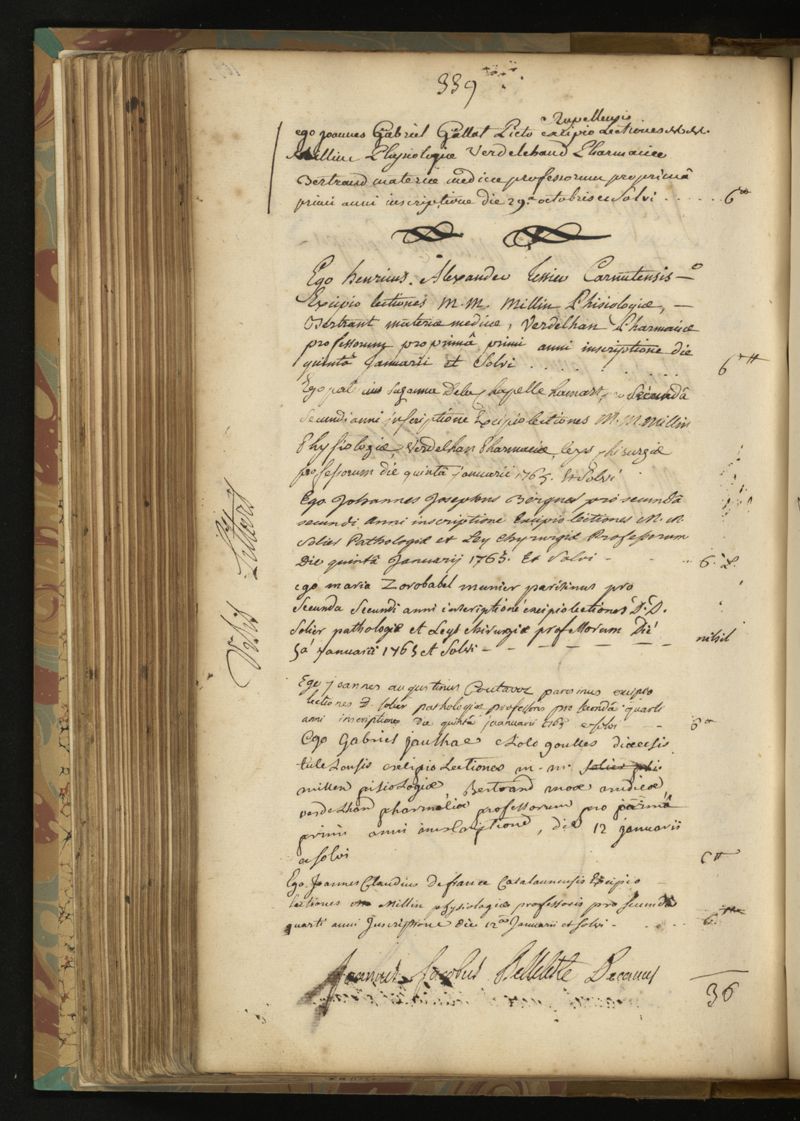 339
Rupellensis
ego joannes Gabriel Gallot Picto excipio Lectiones M.M.
Millin Physiologiæ Verdelehand Pharmaciæ
Bertrand materiæ medicæ professorum pro primâ
primi anni inscriptione die 29a octobris et solvi ...... 6
Ego henricus Alexander Carnutensis
Excipio lectiones M.M. Millin Phisiologiæ, —
Bertrant materiæ medicæ, Verdelhan Pharmaciæ
professorum pro primâ primi anni inscriptione die
quintâ januarii et solvi ........ 6
Ego suzanna Dela chapelle pro Secundâ
secundi anni inscriptione Excipio lectiones M.M. Millin
Physiologiæ, Verdelhan Pharmaciæ, Leys chirurgiæ
professorum die quintâ januarii 1765. Et Solvi
Ego Johannes Josephus Bergues pro secundâ
secundi Anni inscriptione Excipio lectiones M. M.
Solier Pathologiæ et Ley Chyrurgiæ Professorum
Die quintâ Januarij 1765. Et Solvi - ... 6.
ego maria Zorobabel meunier parisinus pro
Secunda Secundi anni inscriptione excipio lectiones D.D.
Solier pathologiæ et Leys chirurgiæ professorum Die
5a Januarii 1765 et Solvi - - - - - - nihil
Ego joannes augustinus Coutavoz parisinus excipio
lectiones D. solier pathologiæ professoris pro secundâ quarti
anni inscriptione die quintâ januarii 1765 et solvi - 6
Ego Gabriel diœcesis
excipio Lectiones m. m. Solier phi
millen pisiologiæ, Bertrand medicæ,
verdelhan pharmaciæ professorum pro primâ
primi anni inscriptione, die 12 januarii
et solvi
Ego Joannes Claudius Defrance Catalaunensis Excipio
lectiones Millin physiologiæ professoris pro secundâ
quarti anni Inscriptione die 12a Januarii et solvi - 6
Joannes Jacobus Belleteste Decanus
36